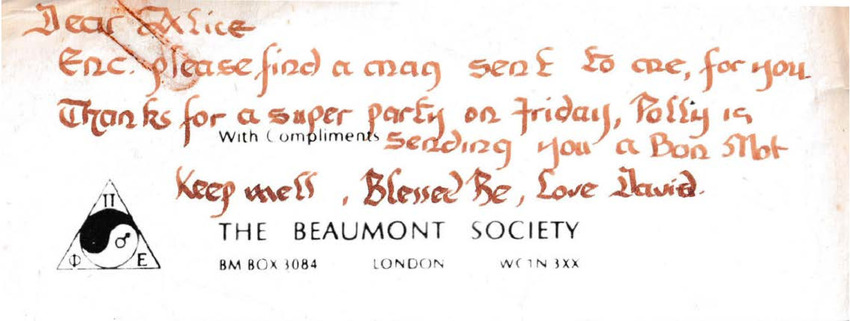 Dear Alice
Enc. please find a mag sent to me, for you.
Thanks for a super party on Friday, Polly is
With Compliments sending you a Bon Mot
Keep well, Blessed Be, Love David.
Π
♂
Φ E
THE BEAUMONT SOCIETY
BM BOX 3084 LONDON WC1N 3XX